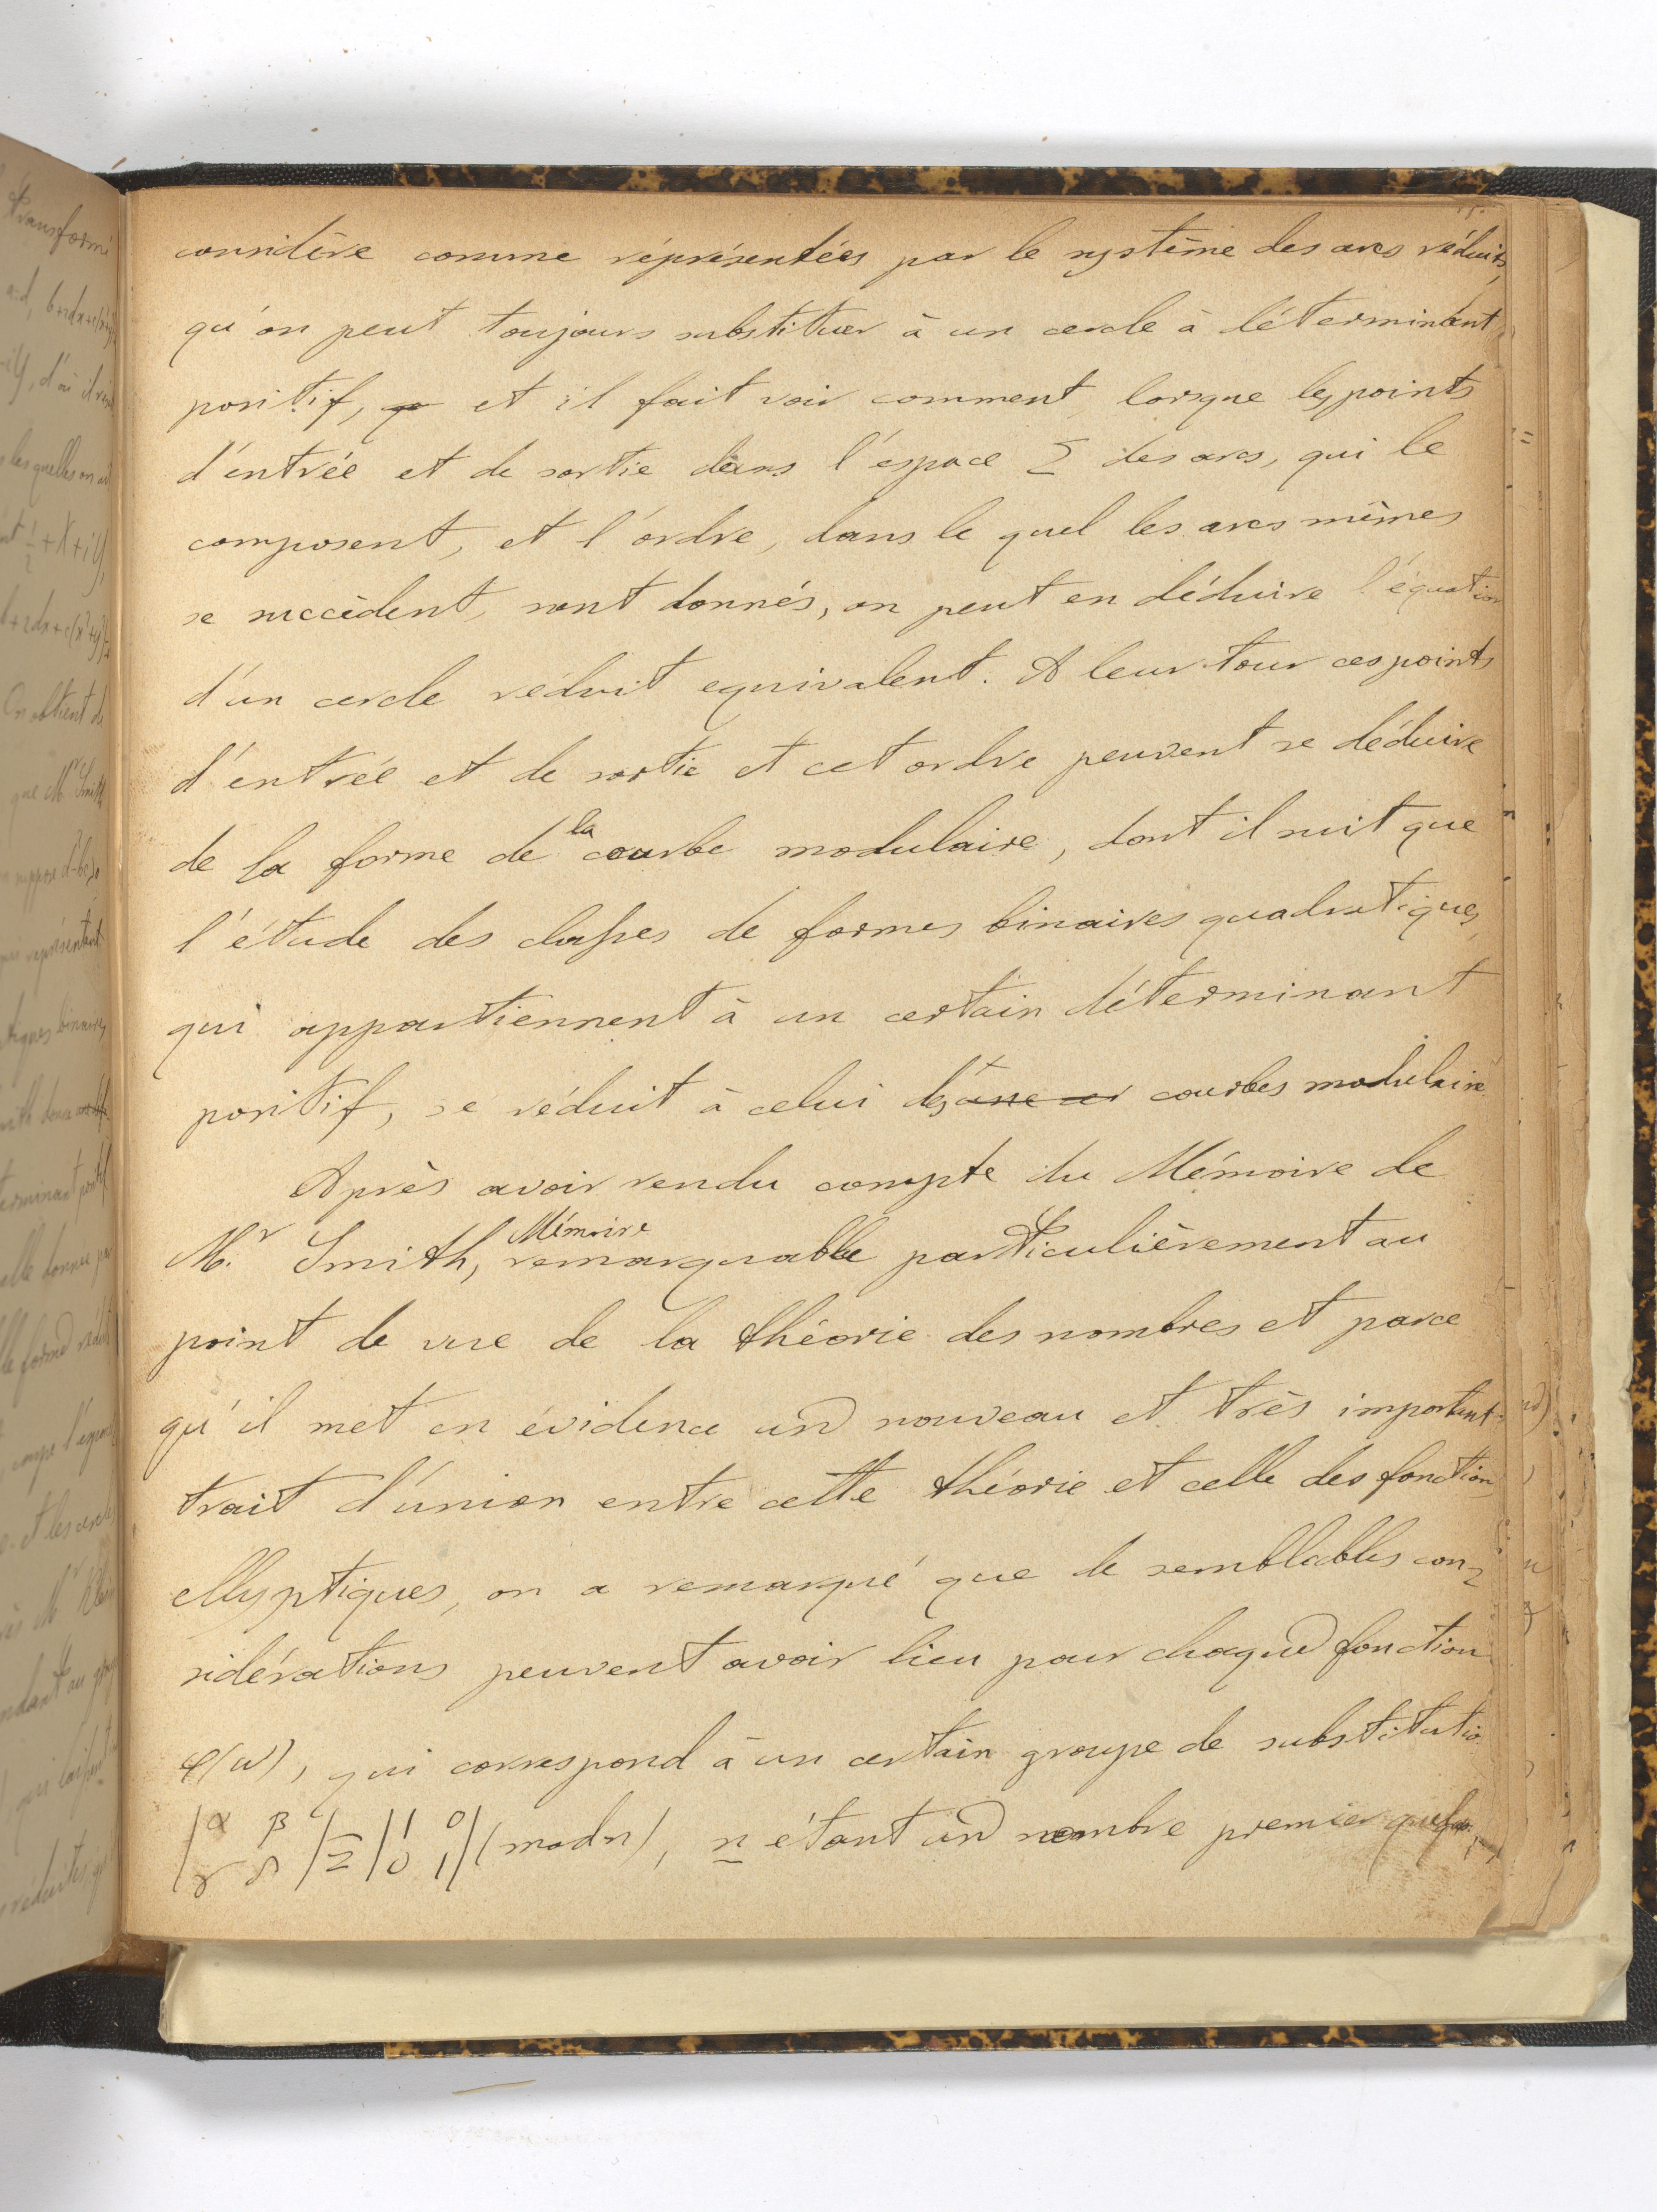 considère comme réprésentées par le système des arcs réduits,
qu'on peut toujours substituer à un cercle à déterminant
positif, et il fait voir comment, lorsque les points
d'entrée et de sortie dans l'espace Σ des arcs, qui le
composent, et l'ordre, dans le quel les arcs mêmes
se succèdent, sont donnés, on peut en déduire l'équation
d'un cercle réduit equivalent. A leur tour ces points
d'entrée et de sortie et cet ordre peuvent se déduire
de la forme de la courbe modulaire, dont il suit que
l'étude des classes de formes binaires quadratiques,
qui appartiennent à un certain déterminant
positif, se réduit à celui des courbes modulaire
Après avoir rendu compte du Mémoire de
M.r Smith, Mémoire remarquable particulièrement au
point de vue de la théorie des nombres et parce
qu'il met en évidence un nouveau et très important
trait d'union entre cette théorie et celle des fonction
ellyptiques, on a remarqué que de semblables con-
sidérations peuvent avoir lieu pour chaque fonction
φ(ω), qui correspond à un certain groupe de substitutio
|α β γ δ| ≡ |1 0 0 1| (mod n), n étant un nombre premier